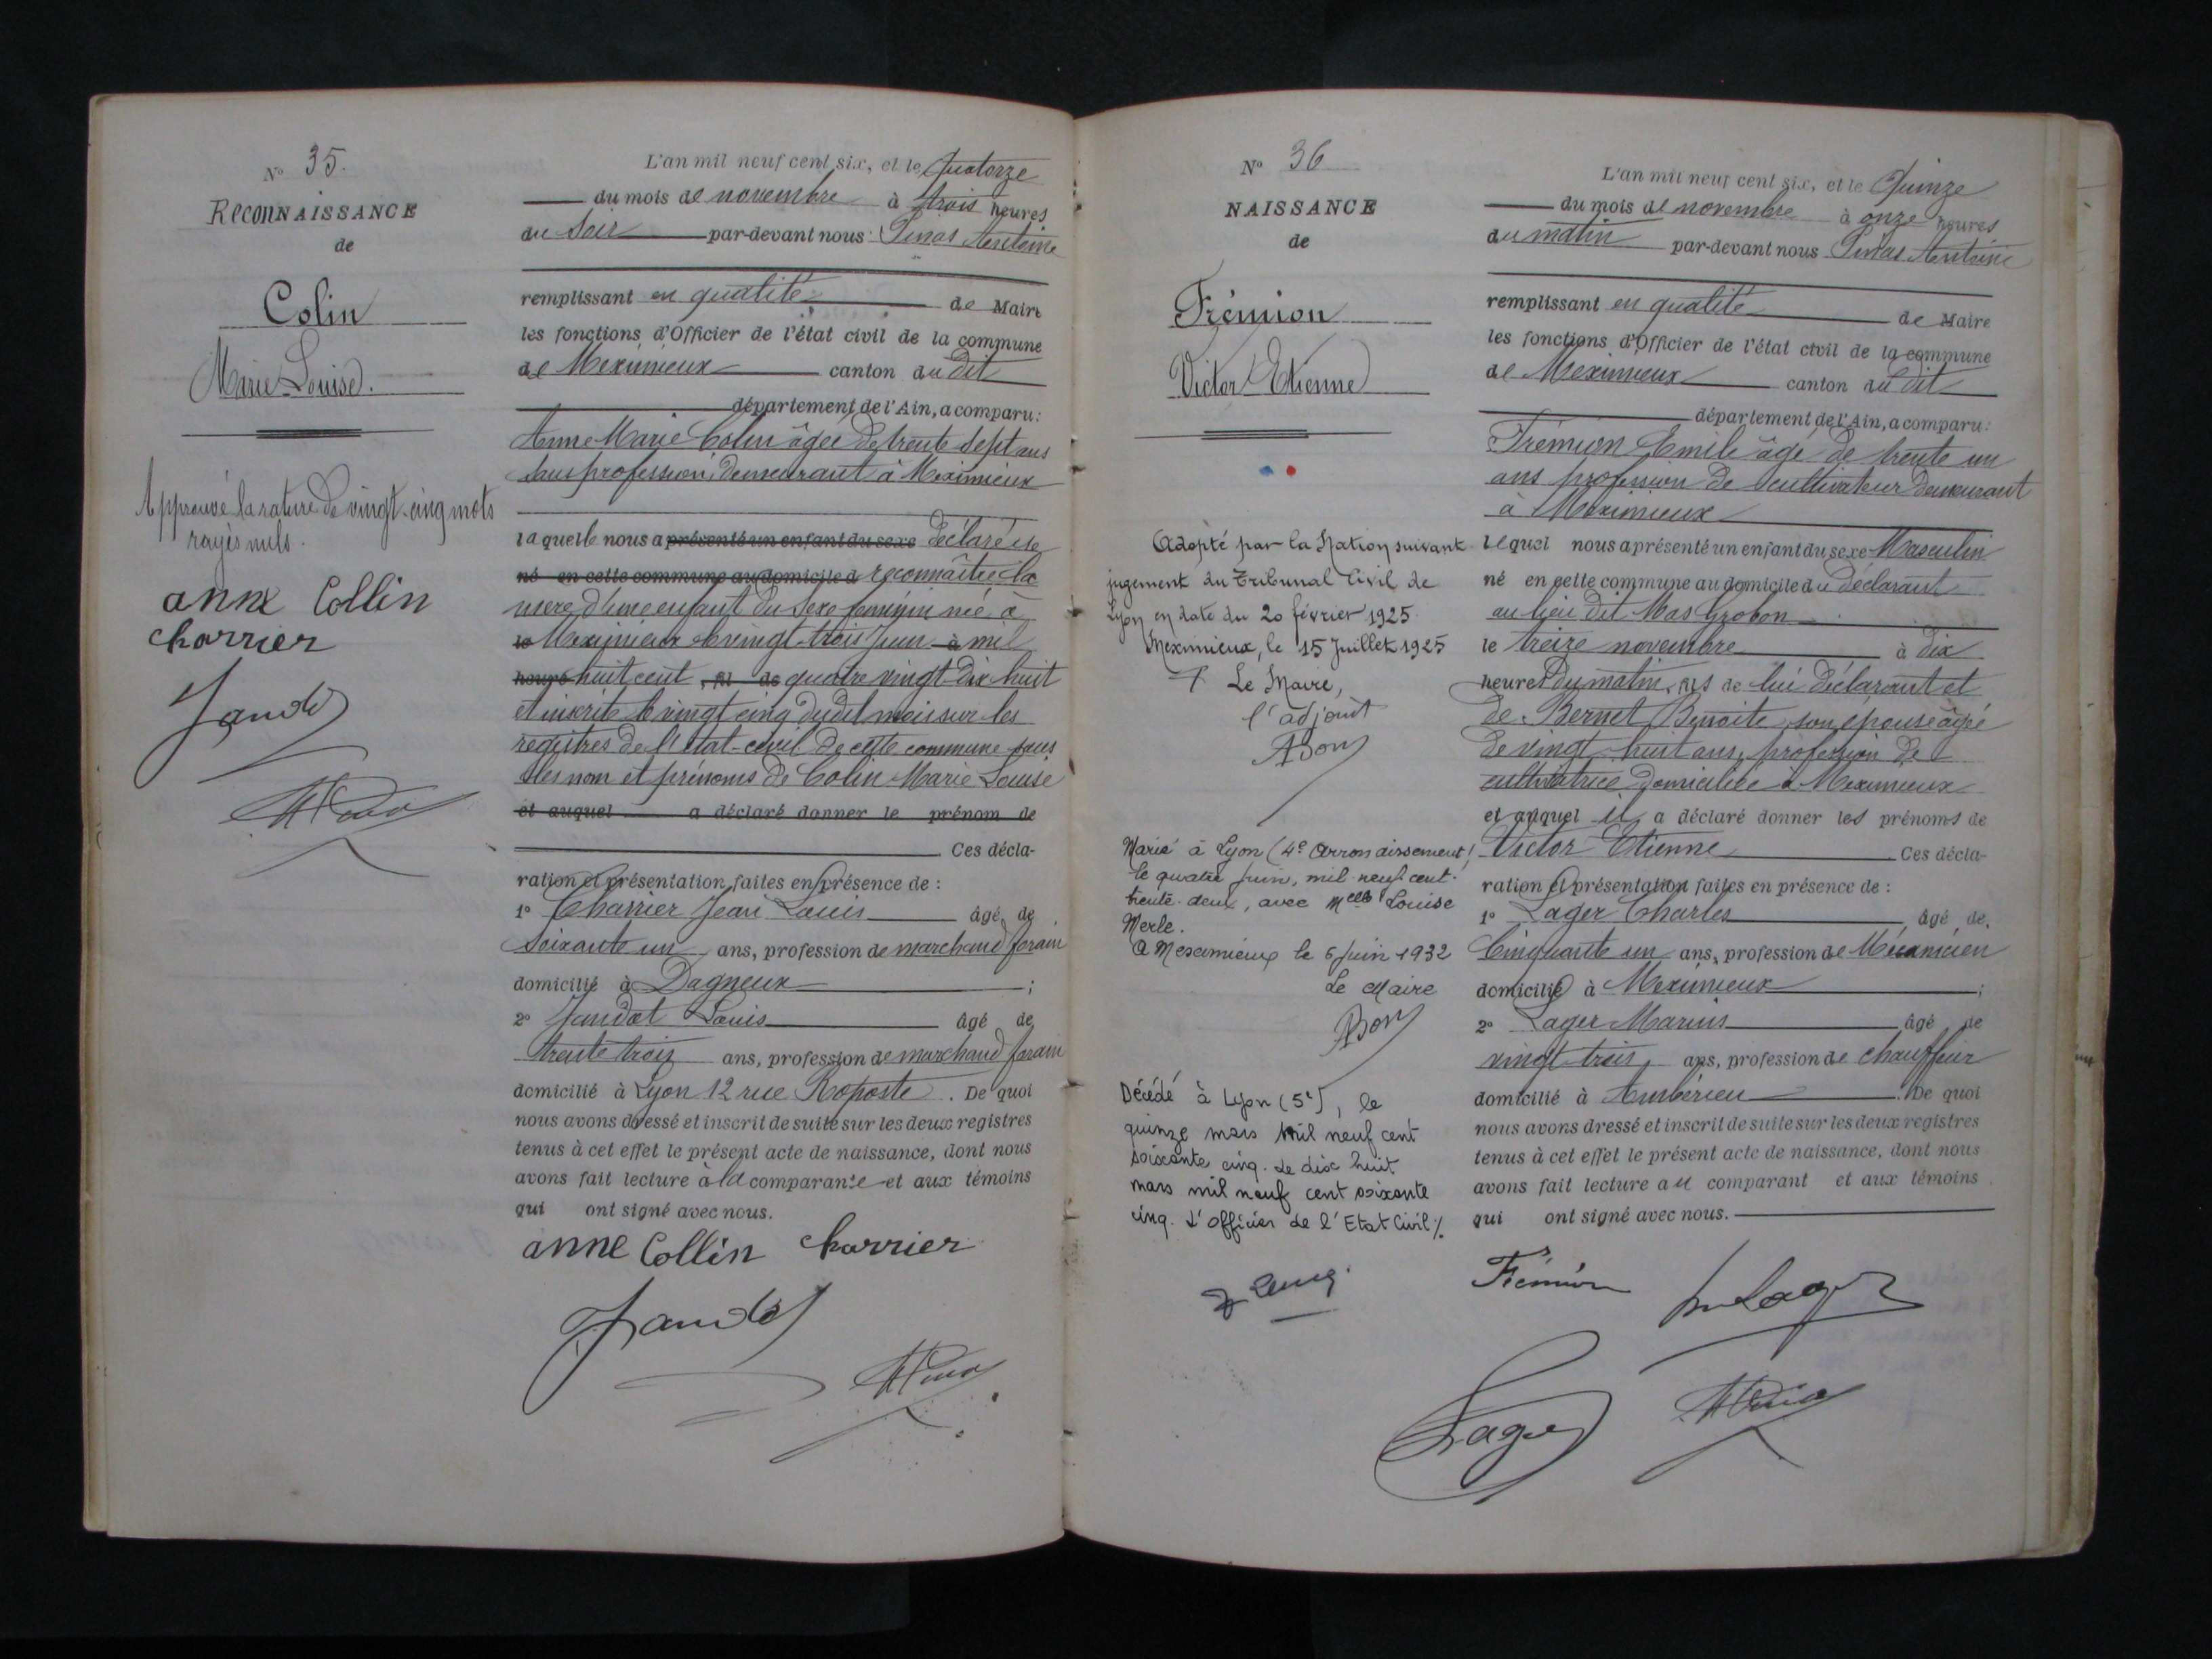 N° 35.
RECONNAISSANCE
de
Colin
Marie Louise.
Approuvé la rature de vingt-cinq mots
rayés nuls.
anne Collin
charrier
L'an mil neuf cent six, et le Quatorze
du mois de novembre à trois heures
du soir par-devant nous Antoine
remplissant en qualité de Maire
les fonctions d'Officier de l'état civil de la commune
de Meximieux canton du dit
département de l'Ain, a comparu:
Anne Marie Colin âgée de trente sept ans
sans profession, demeurant à Meximieux
laquelle nous a présenté un enfant du sexe déclaré se
né en cette commune au domicile d reconnaître la
mère d'une enfant du sexe féminin née à
le Meximieux le vingt-trois juin à mil
heure huit cent , fil de quatre vingt-dix huit
et inscrite le vingt cinq dudit mois sur les
registres de l'état-civil de cette commune sous
les nom et prénoms de Colin Marie Louise
et auquel a déclaré donner le prénom de
Ces décla-
ration et présentation faites en présence de :
1° Charrier Jean Louis âgé de
soixante un ans, profession de marchand forain
domicilié à Dagneux ;
2° Jandet Louis âgé de
trente trois ans, profession de marchand forain
domicilié à Lyon 12 rue . De quoi
nous avons dressé et inscrit de suite sur les deux registres
tenus à cet effet le présent acte de naissance, dont nous
avons fait lecture à la comparante et aux témoins
qui ont signé avec nous.
anne Collin charrier
N° 36
NAISSANCE
de
Frémion
Victor Etienne
Adopté par la Nation suivant
jugement du Tribunal Civil de
Lyon en date du 20 février 1925
Meximieux, le 15 Juillet 1925
Le Maire,
l'adjoint
Marié à Lyon (4e Arrondissement)
le quatre juin, mil neuf cent
trente-deux, avec Melle Louise
Merle.
A Meximieux le 6 juin 1932
Le Maire
Décédé à Lyon (5e), le
quinze mars mil neuf cent
soixante cinq. Le dix huit
mars mil neuf cent soixante
cinq. L'officier de l'Etat Civil ./.
L'an mil neuf cent six, et le Quinze
du mois de novembre à onze heures
du matin par-devant nous Antoine
remplissant en qualité de Maire
les fonctions d'Officier de l'état civil de la commune
de Meximieux canton du dit
département de l'Ain, a comparu:
Frémion Emile âgé de trente un
ans profession de cultivateur demeurant
à Meximieux
lequel nous a présenté un enfant du sexe Masculin
né en cette commune au domicile du déclarant
au lieu dit Mas Grobon
le treize novembre à dix
heures du matin, fils de lui déclarant et
de Bernet Benoite, son épouse âgée
de vingt-huit ans, profession de
cultivatrice domiciliée à Meximieux
et auquel il a déclaré donner les prénoms de
Victor Etienne Ces décla-
ration et présentation faites en présence de :
1° Lager Charles âgé de
Cinquante un ans, profession de Mécanicien
domicilié à Meximieux ;
2° Lager Marius âgé de
vingt trois ans, profession de chauffeur
domicilié à Ambérieu . De quoi
nous avons dressé et inscrit de suite sur les deux registres
tenus à cet effet le présent acte de naissance, dont nous
avons fait lecture au comparant et aux témoins
qui ont signé avec nous.
Frémion
Lager